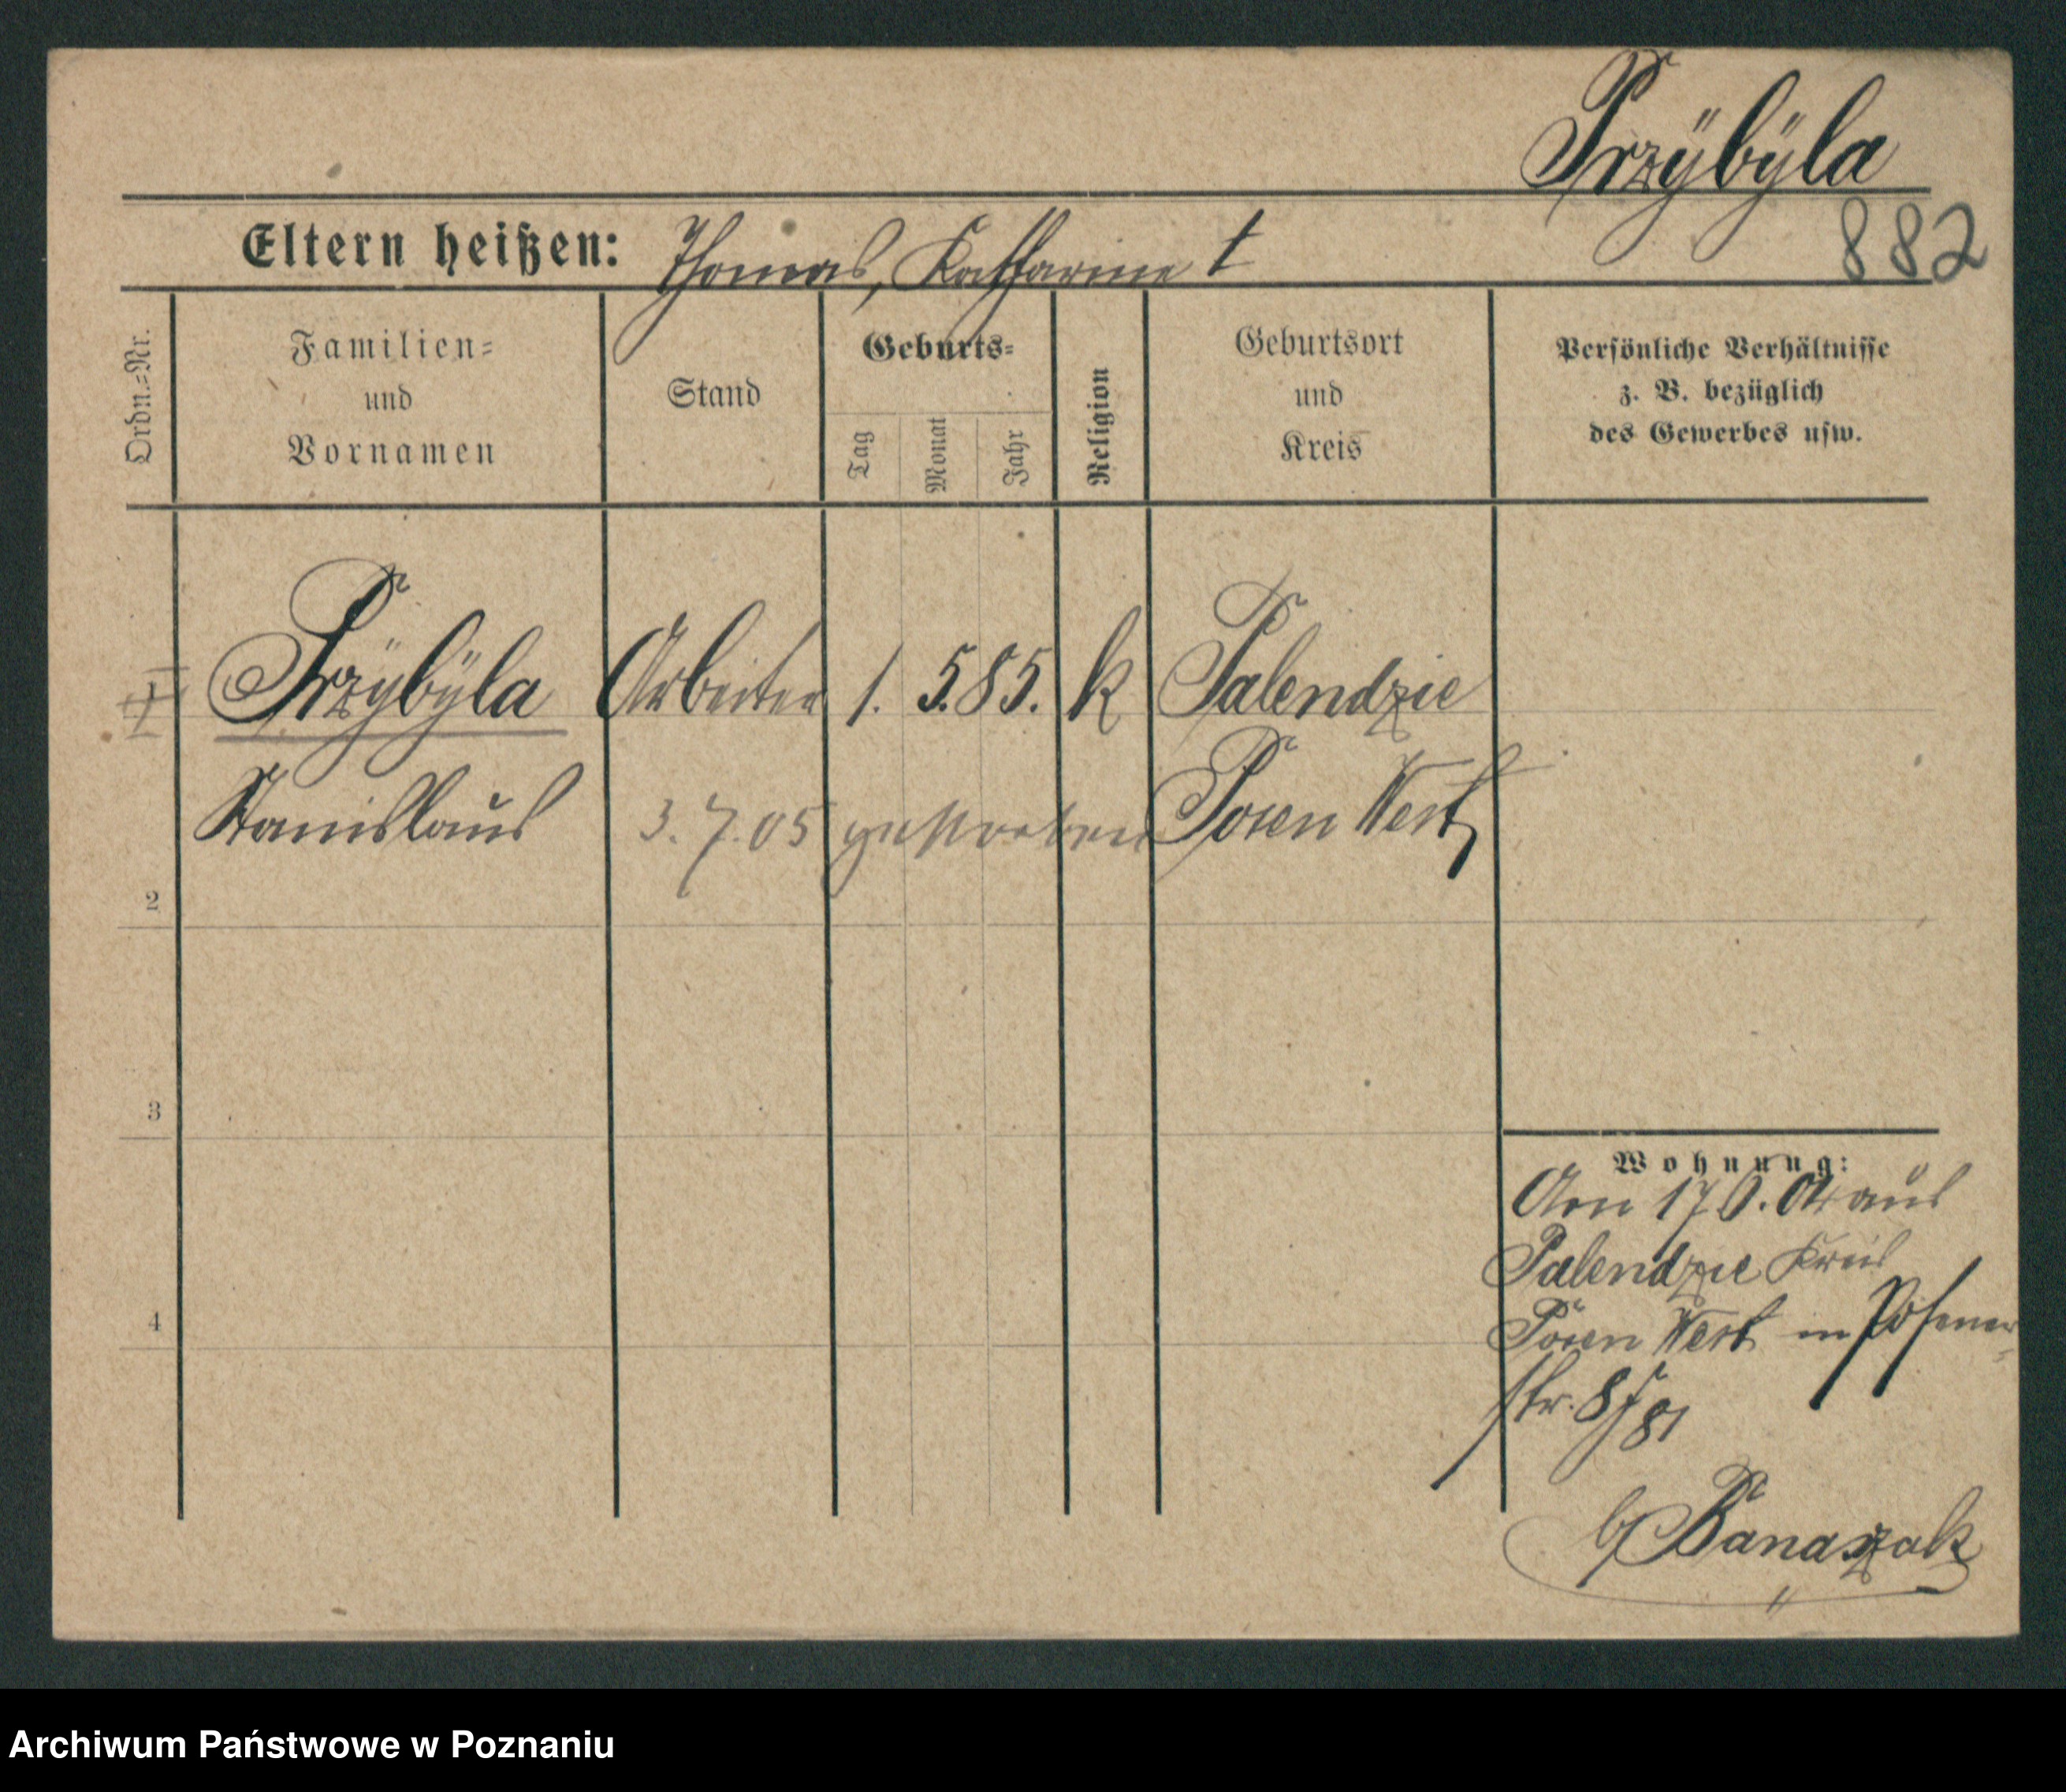 Przÿbÿla
882
Eltern heißen: Thomas, Katharine †
Ordn.=Nr.
Familien=
und
Vornamen
Stand
Geburts=
Tag
Monat
Jahr
Religion
Geburtsort
und
Kreis
Persönliche Verhältnisse
z. B. bezüglich
des Gewerbes usw.
1 Przÿbÿla Arbeiter 1. 5. 85. k Palendzie
Stanislaus 3. 7. 05 gestorben Posen West
2
3
4
Wohnung:
Am 17 6. 04 aus
Palendzie Kreis
Posen West in Posener
str. 8
b/ Banaszak
Archiwum Państwowe w Poznaniu